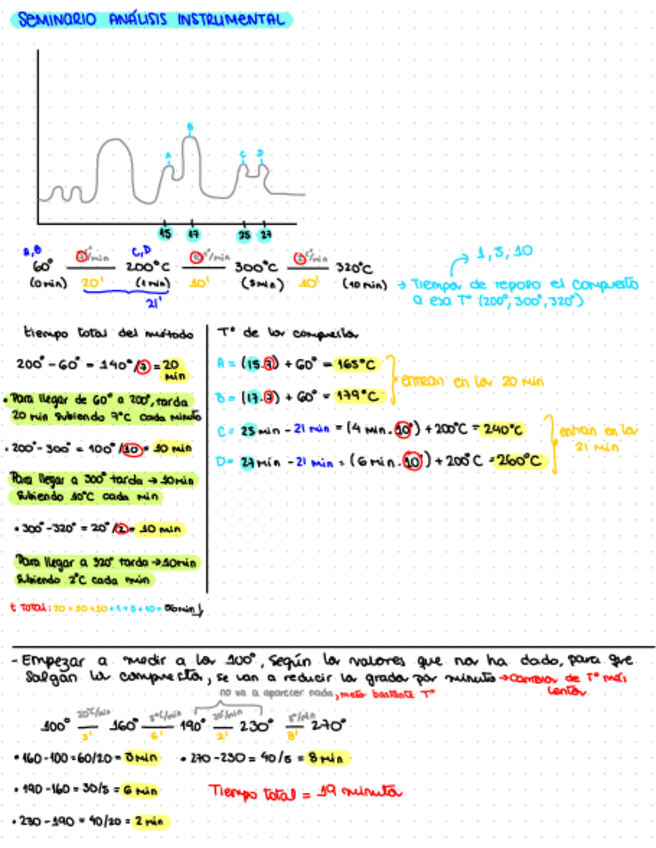 SEMINARIO ANÁLISIS INSTRUMENTAL
A B C D
15 17 25 27
A,B C,D
60° 7°/min 200°C 10°/min 300°C 2°C/min 320°C
(0min) 20' (1min) 10' (5min) 10' (10min)
21'
1, 5, 10
→ Tiempos de reposo el compuesto
a esa T° (200°, 300°, 320°)
tiempo total del método
200° - 60° = 140°/7 = 20
min
• Para llegar de 60° a 200°, tarda
20 min subiendo 7°C cada minuto
• 200° - 300° = 100°/10 = 10 min
Para llegar a 300° tarda → 10min
subiendo 10°C cada min
• 300° - 320° = 20°/2 = 10 min
Para llegar a 320° tarda → 10min
subiendo 2°C cada min
t TOTAL: 20 + 10 + 10 + 1 + 5 + 10 = 56min
T° de los compuestos
A = (15.7) + 60° = 165°C
B = (17.7) + 60° = 179°C
entran en los 20 min
C = 25 min - 21 min = (4 min . 10°) + 200°C = 240°C
D = 27 min - 21 min = (6 min . 10°) + 200°C = 260°C
entran en los
21 min
- Empezar a medir a los 100°, según los valores que nos ha dado, para que
salgan los compuestos, se van a reducir los grados por minuto → Cambios de T° más
lentos
no va a aparecer nada, meto bastante T°
100° 20°C/min 160° 5°C/min 190° 20°/min 230° 5°/min 270°
3' 6' 2' 8'
• 160 - 100 = 60/20 = 3 min • 270 - 230 = 40/5 = 8 min
• 190 - 160 = 30/5 = 6 min Tiempo total = 19 minutos
• 230 - 190 = 40/20 = 2 min